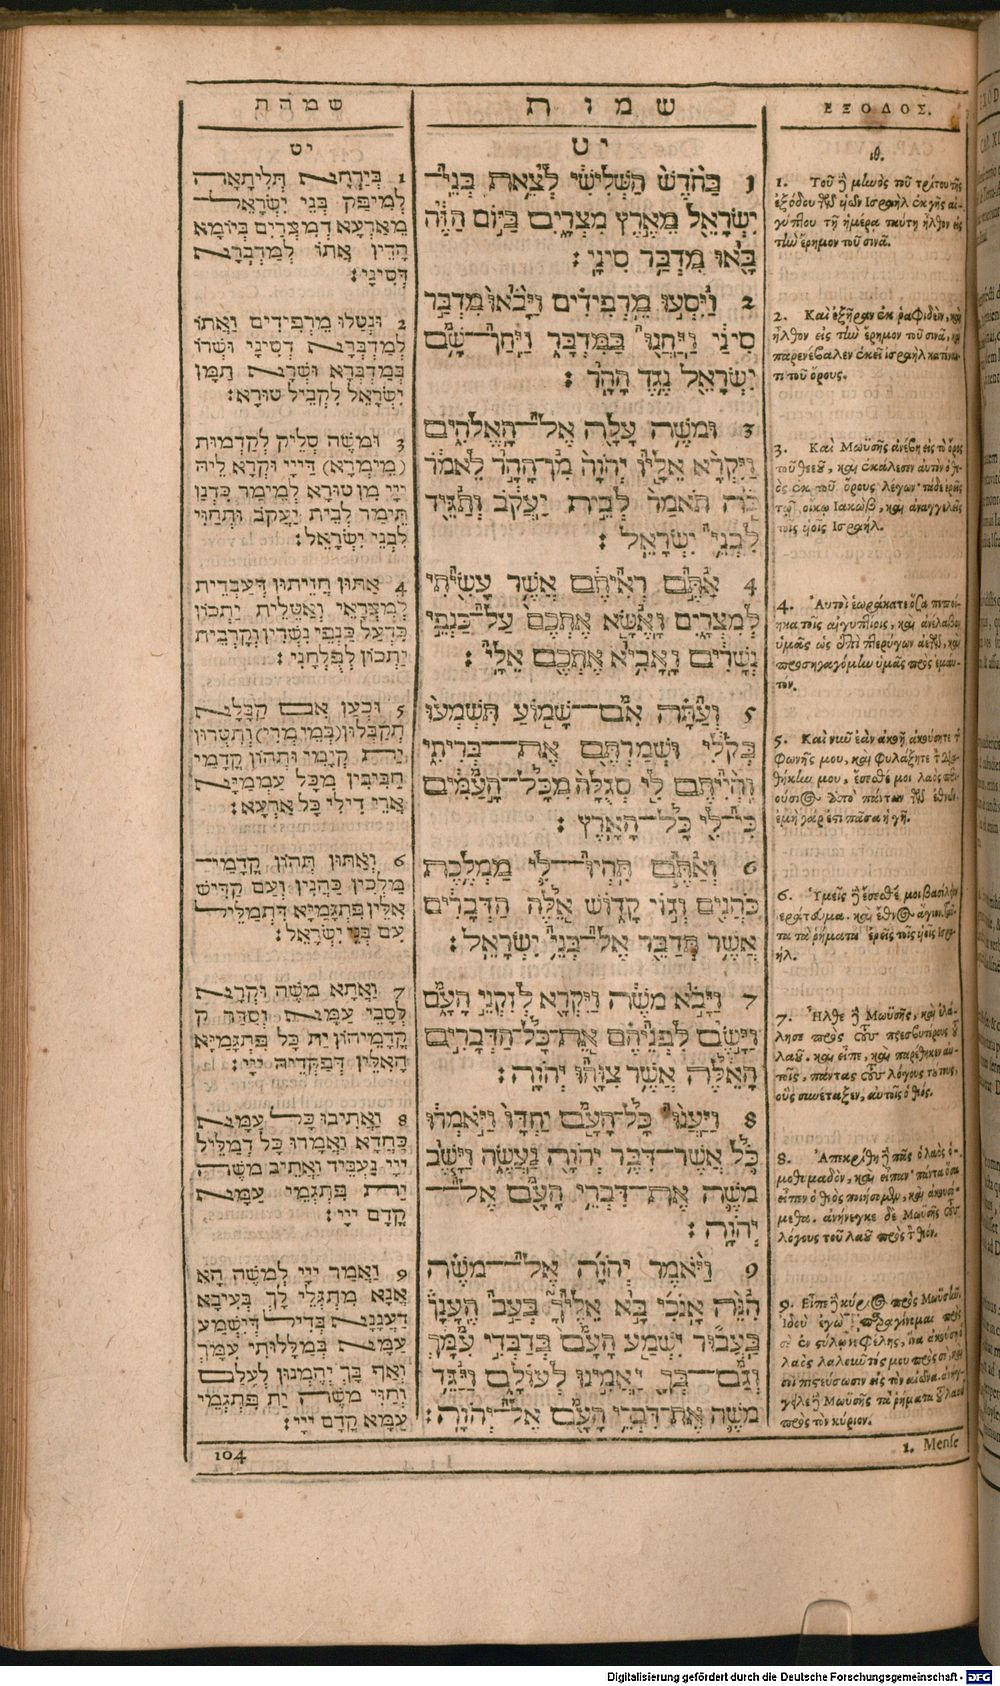 שמות
שמות
ΕΞΟΔΟΣ.
יט
1 בְּיַרְחָא תְּלִיתָאָה
לְמִיפַּק בְּנֵי יִשְׂרָאֵל
מֵאַרְעָא דְמִצְרַיִם בְּיוֹמָא
הָדֵין אֲתוֹ לְמַדְבְּרָא
דְּסִינָי׃
2 וּנְטָלוּ מֵרְפִידִים וַאֲתוֹ
לְמַדְבְּרָא דְסִינַי וּשְׁרוֹ
בְּמַדְבְּרָא וּשְׁרָא תַמָּן
יִשְׂרָאֵל לִקֳבֵיל טוּרָא׃
3 וּמֹשֶׁה סְלֵיק לִקְדָמוּת
(מֵימְרָא) דַּייָי וּקְרָא לֵיהּ
יְיָי מִן טוּרָא לְמֵימַר כְּדֵנַן
תֵּימַר לְבֵית יַעֲקֹב וּתְחַוֵּי
לִבְנֵי יִשְׂרָאֵל׃
4 אַתּוּן חֲזֵיתוּן דַּעֲבָדִית
לְמִצְרָאֵי וְאַטֵּלִית יַתְכוֹן
כִּדְעַל גַּנְפֵי נִשְׁרִין וְקָרֵבִית
יַתְכוֹן לְפָלְחָנִי׃
5 וּכְעַן אִם קַבָּלָא
תְקַבְּלוּן (בְּמֵימְרִי) וְתִטְּרוּן
יַת קְיָמִי וּתְהוֹן קֳדָמַי
חַבִּיבִין מִכָּל עַמְמַיָּא
אֲרֵי דִילִי כָּל אַרְעָא׃
6 וְאַתּוּן תְּהוֹן קֳדָמַי
מַלְכִין כַּהֲנִין וְעַם קַדִּישׁ
אִלֵּין פִּתְגָּמַיָּא דִּתְמַלֵּיל
עִם בְּנֵי יִשְׂרָאֵל׃
7 וַאֲתָא מֹשֶׁה וּקְרָא
לְסָבֵי עַמָּא וְסַדַּר ק
קֳדָמֵיהוֹן יַת כָּל פִּתְגָּמַיָּא
הָאִלֵּין דְּפַקְּדֵיהּ יְיָי׃
8 וַאֲתִיבוּ כָל עַמָּא
כַּחֲדָא וַאֲמָרוּ כָּל דְמַלֵּיל
יְיָי נַעְבֵּיד וַאֲתֵיב מֹשֶׁה
יַת פִּתְגָּמֵי עַמָּא
קֳדָם יְיָי׃
9 וַאֲמַר יְיָי לְמֹשֶׁה הָא
אֲנָא מִתְגְּלֵי לָךְ בְּעֵיבָא
דַעֲנָנָא בְּדִיל דְּיִשְׁמַע
עַמָּא בְּמַלָּלוּתִי עִמָּךְ
וְאַף בָּךְ יְהֵמְנוּן לְעָלַם
וְחַוִּי מֹשֶׁה יַת פִּתְגָּמֵי
עַמָּא קֳדָם יְיָי׃
יט
1 בַּחֹדֶשׁ הַשְּׁלִישִׁי לְצֵאת בְּנֵי־
יִשְׂרָאֵל מֵאֶרֶץ מִצְרָיִם בַּיּוֹם הַזֶּה
בָּאוּ מִדְבַּר סִינָי׃
2 וַיִּסְעוּ מֵרְפִידִים וַיָּבֹאוּ מִדְבַּר
סִינַי וַיַּחֲנוּ בַּמִּדְבָּר וַיִּחַן־שָׁם
יִשְׂרָאֵל נֶגֶד הָהָר׃
3 וּמֹשֶׁה עָלָה אֶל־הָאֱלֹהִים
וַיִּקְרָא אֵלָיו יְהֹוָה מִן־הָהָר לֵאמֹר
כֹּה תֹאמַר לְבֵית יַעֲקֹב וְתַגֵּיד
לִבְנֵי יִשְׂרָאֵל׃
4 אַתֶּם רְאִיתֶם אֲשֶׁר עָשִׂיתִי
לְמִצְרָיִם וָאֶשָּׂא אֶתְכֶם עַל־כַּנְפֵי
נְשָׁרִים וָאָבִיא אֶתְכֶם אֵלָי׃
5 וְעַתָּה אִם־שָׁמוֹעַ תִּשְׁמְעוּ
בְּקֹלִי וּשְׁמַרְתֶּם אֶת־בְּרִיתִי
וִהְיִיתֶם לִי סְגֻלָּה מִכָּל־הָעַמִּים
כִּי־לִי כָּל־הָאָרֶץ׃
6 וְאַתֶּם תִּהְיוּ־לִי מַמְלֶכֶת
כֹּהֲנִים וְגוֹי קָדוֹשׁ אֵלֶּה הַדְּבָרִים
אֲשֶׁר תְּדַבֵּר אֶל־בְּנֵי יִשְׂרָאֵל׃
7 וַיָּבֹא מֹשֶׁה וַיִּקְרָא לְזִקְנֵי הָעָם
וַיָּשֶׂם לִפְנֵיהֶם אֵת־כָּל־הַדְּבָרִים
הָאֵלֶּה אֲשֶׁר צִוָּהוּ יְהֹוָה׃
8 וַיַּעֲנוּ כָל־הָעָם יַחְדָּו וַיֹּאמְרוּ
כֹּל אֲשֶׁר־דִּבֶּר יְהֹוָה נַעֲשֶׂה וַיָּשֶׁב
מֹשֶׁה אֶת־דִּבְרֵי הָעָם אֶל־
יְהֹוָה׃
9 וַיֹּאמֶר יְהֹוָה אֶל־מֹשֶׁה
הִנֵּה אָנֹכִי בָּא אֵלֶיךָ בְּעַב הֶעָנָן
בַּעֲבוּר יִשְׁמַע הָעָם בְּדַבְּרִי עִמָּךְ
וְגַם־בְּךָ יַאֲמִינוּ לְעוֹלָם וַיַּגֵּד
מֹשֶׁה אֶת־דִּבְרֵי הָעָם אֶל־יְהֹוָה׃
ιθ.
1. Τοῦ ἢ μἰωὸς τοῦ τρίτου τῆς
ἐξόδου τῶν υἱῶν Ισραὴλ ἐκ γῆς αἰ-
γύπτου τῇ ἡμέρα ταύτη ἦλθον εἰς
τὴν ἔρημον τοῦ σινᾶ.
2. Καὶ ἐξῆραν ἐκ ραφιδεὶν, καὶ
ἦλθον εἰς τὴν ἔρημον τοῦ σινᾶ, καὶ
παρενέβαλεν ἐκεῖ ισραὴλ κατέναν-
τι τοῦ ὄρους.
3. Καὶ Μωϋσῆς ἀνέβη εἰς τὸ ὄρος
τοῦ θεοῦ, καὶ ἐκάλεσεν αὐτὸν ὁ θε-
ὸς ἐκ τοῦ ὄρους λέγων· τάδε ἐρεῖς
τῷ οἴκῳ Ιακὼβ, καὶ ἀναγγελεῖς
τοῖς υἱοῖς Ισραήλ.
4. Αὐτοὶ ἑωράκατε ὅσα πεποί-
ηκα τοῖς αἰγυπτίοις, καὶ ἀνέλαβον
ὑμᾶς ὡς ἐπὶ πτερύγων ἀετῶν, καὶ
προσηγαγόμην ὑμᾶς πρὸς ἐμαυ-
τόν.
5. Καὶ νῦν ἐὰν ἀκοῇ ἀκούσητε τ
φωνῆς μου, καὶ φυλάξητε τ δια-
θήκην μου, ἔσεσθέ μοι λαὸς περι-
ούσιος ἀπὸ πάντων τῶν ἐθνῶν.
ἐμὴ γάρ ἐστι πᾶσα ἡ γῆ.
6. Ὑμεῖς ἢ ἔσεσθέ μοι βασίλειον
ἱεράτευμα. καὶ ἔθνος ἅγιον. ταῦ-
τα τὰ ῥήματα ἐρεῖς τοῖς υἱοῖς Ισρα-
ήλ.
7. Ηλθε ἢ Μωϋσῆς, καὶ ἐκά-
λησε πρὸς τοὺς πρεσβυτέρους τοῦ
λαοῦ. καὶ εἶπε, καὶ παρέθηκεν αὐ-
τοῖς, πάντας τοὺς λόγους τούτους,
οὓς συνέταξεν, αὐτοῖς ὁ θεός.
8. Ἀπεκρίθη ἢ πᾶς ὁ λαὸς ὁ-
μοθυμαδὸν, καὶ εἶπαν· πάντα ὅσα
εἶπεν ὁ θεὸς ποιήσομεν, καὶ ἀκουσό-
μεθα. ἀνήνεγκε δὲ Μωϋσῆς τοὺς
λόγους τοῦ λαοῦ πρὸς τ θεόν.
9. Εἶπε ἢ κύριος πρὸς Μωϋσῆν,
ἰδοὺ ἐγὼ παραγίνομαι πρὸς
σὲ ἐν στύλῳ νεφέλης, ἵνα ἀκούσῃ ὁ
λαὸς λαλοῦντός μου πρὸς σὲ, καὶ
σοὶ πιστεύσωσιν εἰς τὸν αἰῶνα. ἀνήγ-
γειλε ἢ Μωϋσῆς τὰ ῥήματα τοῦ λαοῦ
πρὸς τὸν κύριον.
104
1. Mense
Digitalisierung gefördert durch die Deutsche Forschungsgemeinschaft - DFG